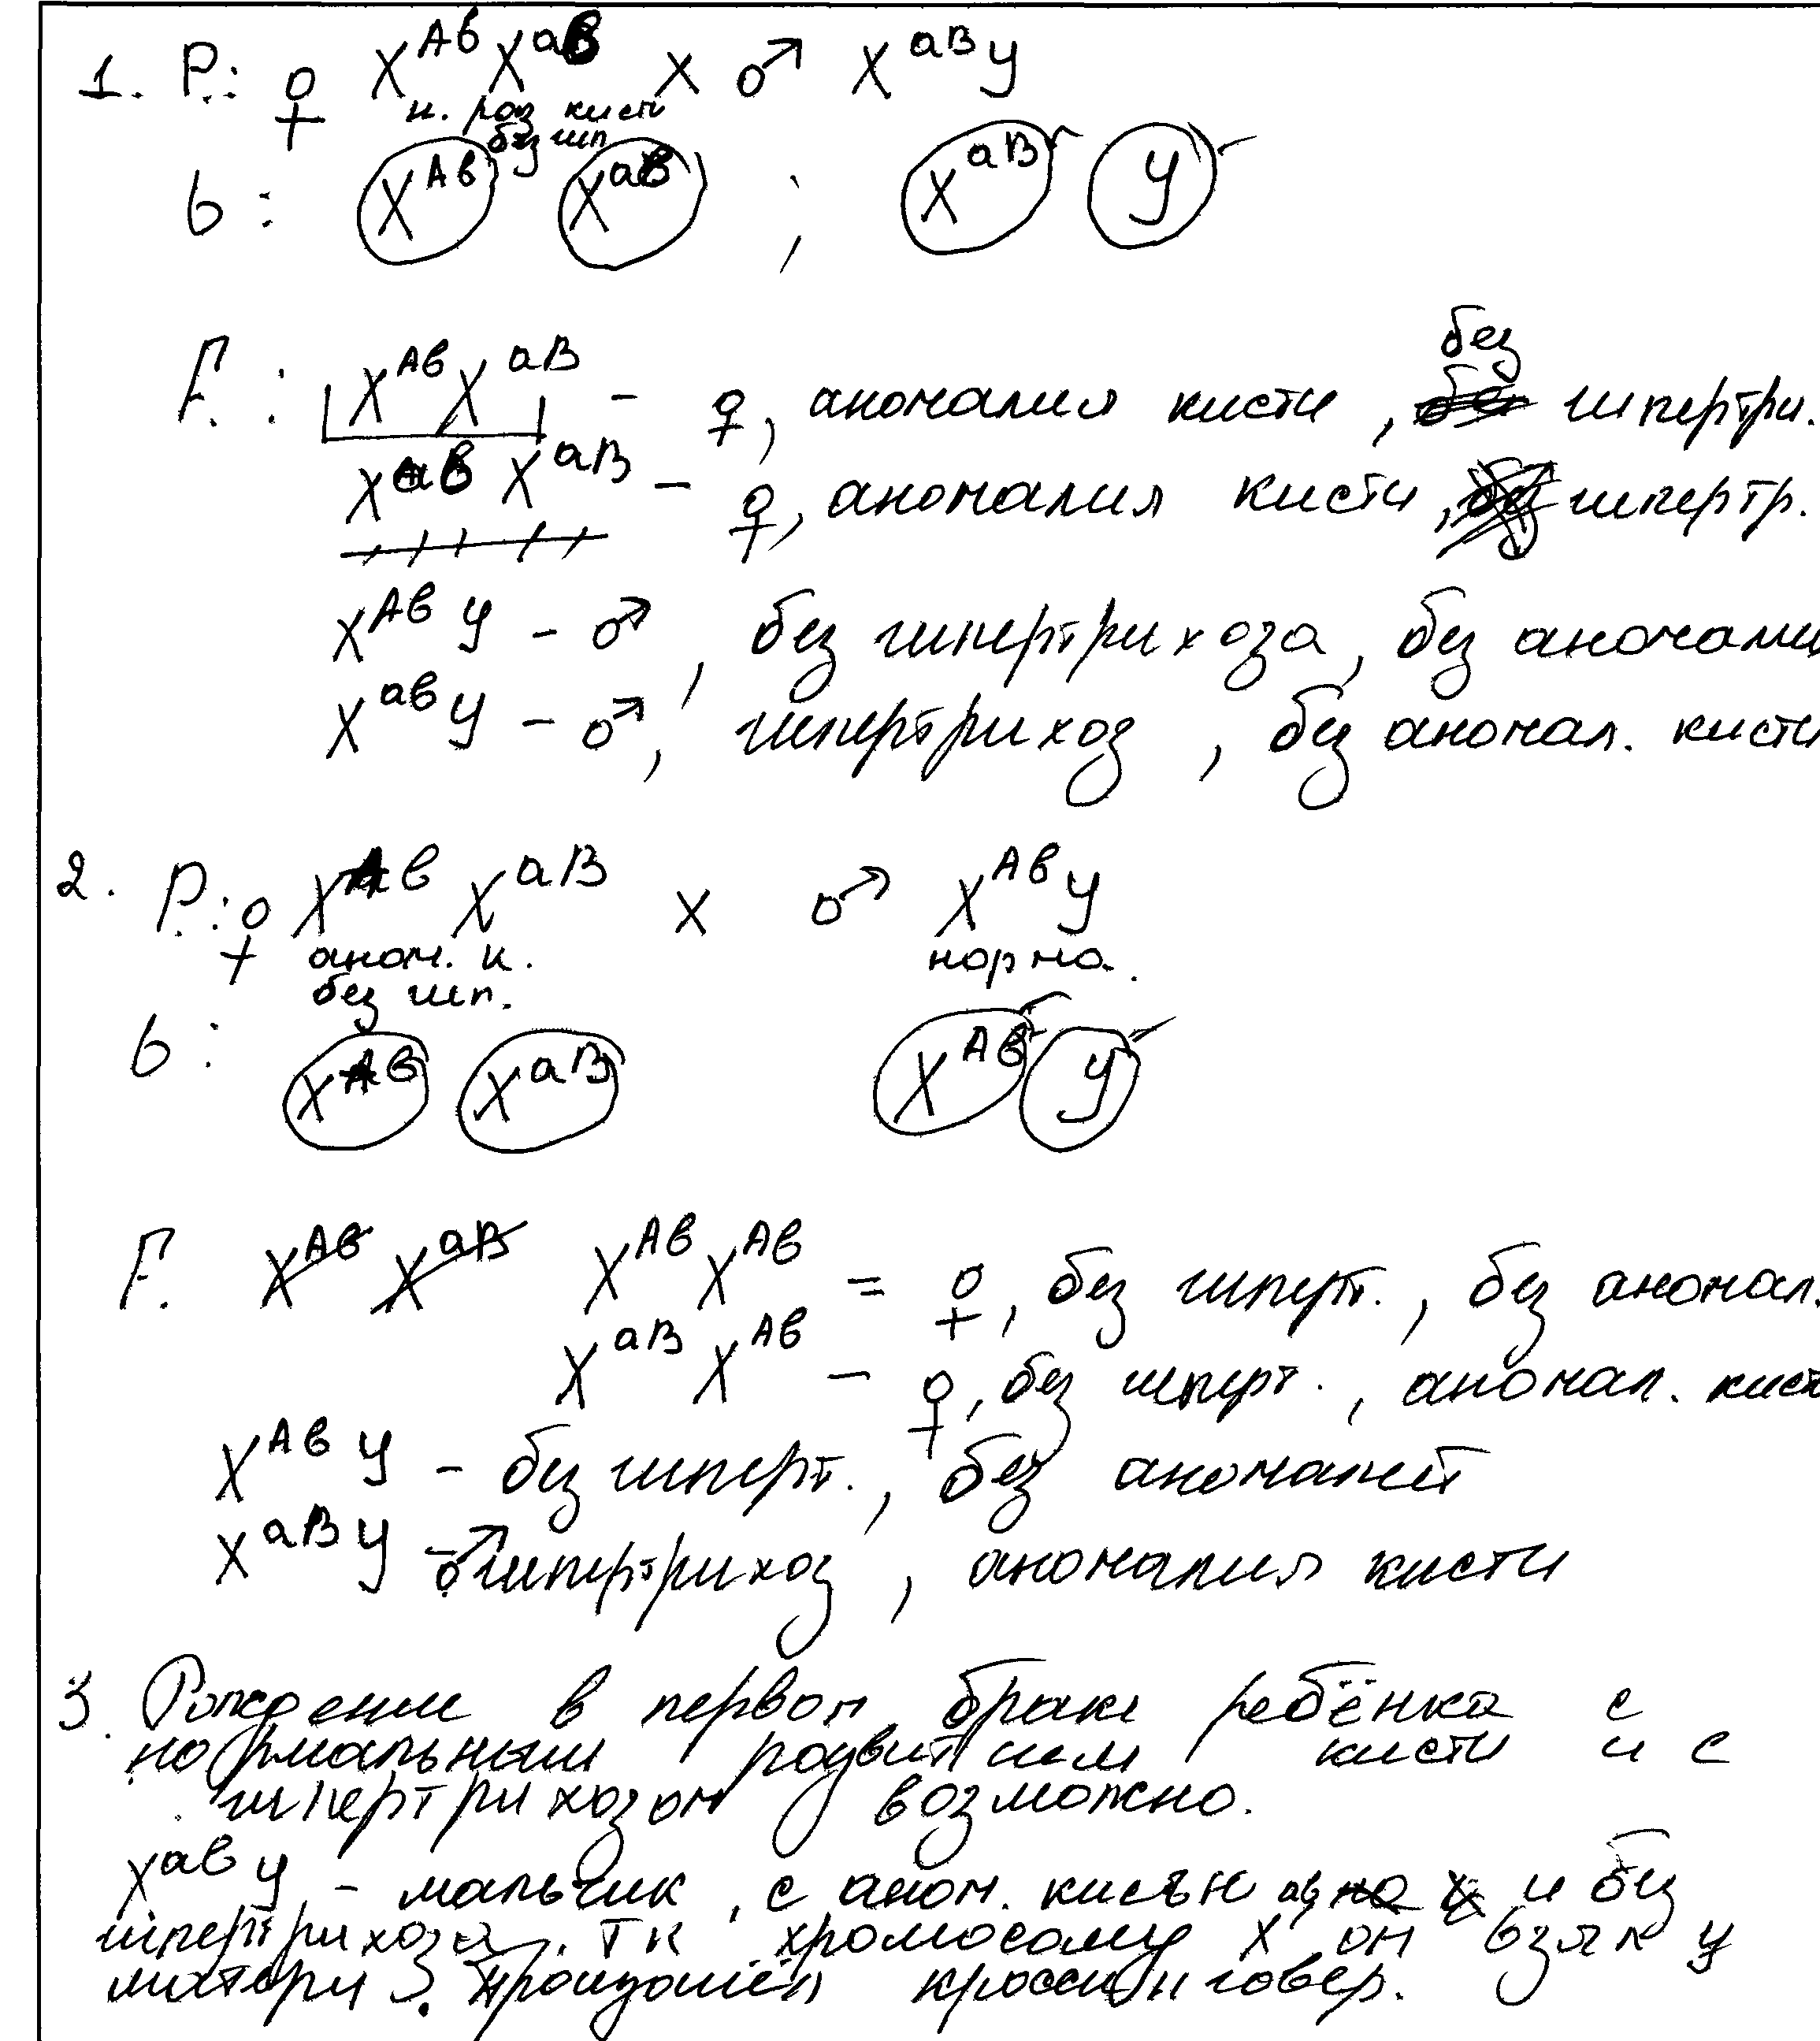 1. P.: ♀ X^Aв X^aв x ♂ X^aB y
н. раз кисти
без гип
G: X^Aв X^aв ; X^aB y
F.: X^Aв X^aB - ♀, аномалия кисти, без гипертри.
X^aв X^aB - ♀, аномалия кисти, гипертр.
X^Aв y - ♂, без гипертрихоза, без аномали
X^aв y - ♂, гипертрихоз, без аномал. кисти
2. P.: ♀ X^Aв X^aB x ♂ X^Aв y
аном. к. норма.
без гип.
G: X^Aв X^aB X^Aв y
F. X^Aв X^aB X^Aв X^Aв = ♀, без гиперт., без аномал.
X^aB X^Aв - ♀, без гиперт., аномал. кист
X^Aв y - без гиперт., без аномалий
X^aB y - ♂ гипертрихоз, аномалия кисти
3. Рождение в первом браке ребёнка с
нормальным развитием кисти и с
гипертрихозом возможно.
X^aв y - мальчик, с аном. кисти и без
гипертрихоза. тк хромосому X он взял у
матери. Произошёл кроссинговер.